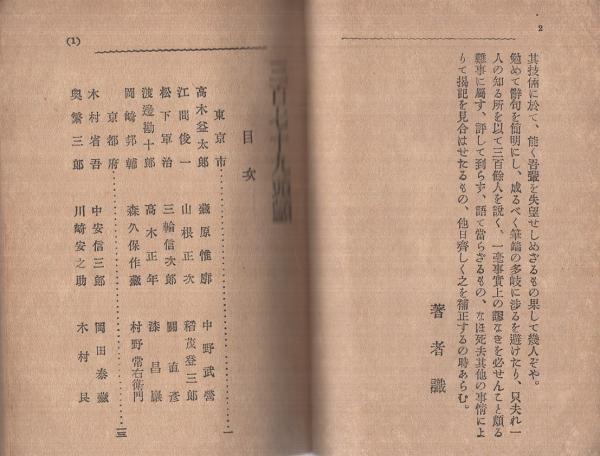 2
其技倆に於て、能く吾輩を失望せしめざるもの果して幾人ぞや。
勉めて辭句を簡明にし、成るべく筆端の多岐に渉るを避けたり、只夫れ一
人の知る所を以て三百餘人を説く、一毫事實上の謬なきを必せんこと頗る
難事に屬す、評して到らず、語て當らざるもの、なほ死去其他の事情によ
りて揭記を見合はせたるもの、他日齊しく之を補正するの時あらむ。
著者識
三百七十九頭顱
目次
東京市……一
高木益太郎 藏原惟廓 中野武營
江間俊一 山根正次 稻茂登三郎
松下軍治 三輪信次郎 關直彥
渡邊勘十郎 高木正年 漆昌巖
岡崎邦輔 森久保作藏 村野常右衛門
京都府……三
木村省吾 中安信三郎 岡田泰藏
奥繁三郎 川崎安之助 木村艮
(1)